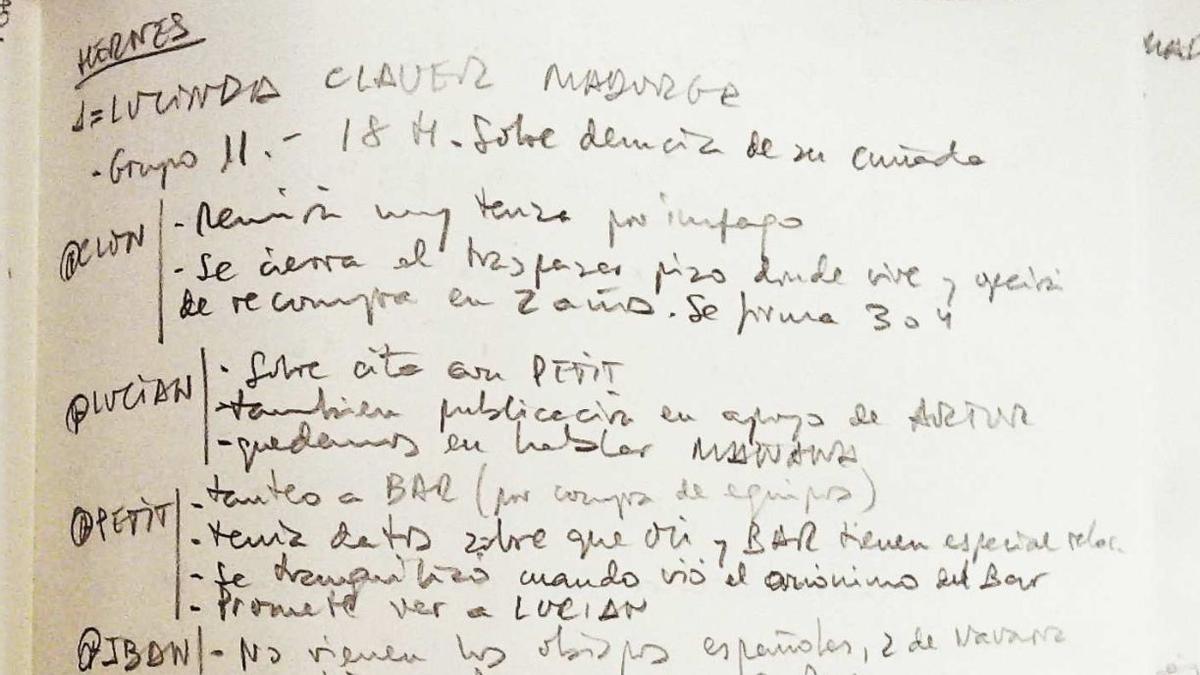 HERNES
1=LUCINDA CLAVER MADURGA
- Grupo 11. - 18 H. Sobre denuncia de su cuñada
@CLON - Reunión muy tensa por impago
- Se cierra el traspaso piso donde vive y opción
de recompra en 2 años. Se firma 3 o 4
@LUCIAN - Sobre cita con PETIT
- también publicación en apoyo de ARTUR
- quedamos en hablar MAÑANA
@PETIT - tanteo a BAR (por compra de equipos)
- tenía datos sobre que y BAR tienen especial relac.
- Se tranquilizó cuando vió el anónimo del Bar
- Prometé ver a LUCIAN
@IBAN - No vienen los obispos españoles, 2 de Navarra
MAD